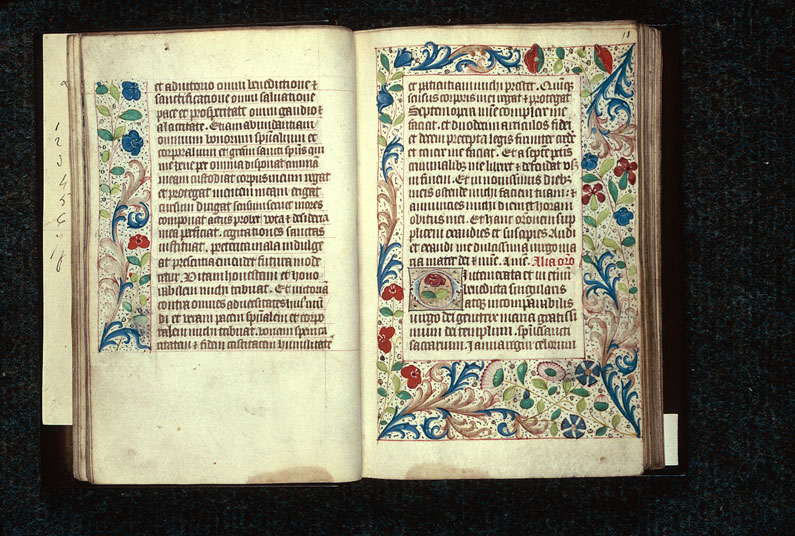 et adiutorio omni benedictione ⁊
sanctificatione omni saluatione
pace et prosperitate omni gaudio ⁊
alacritate. Et iam abundantiam
omnium bonorum spūaliuȝ et
corporaliuȝ et grām sancti spūs qui
michi bene per omnia disponat animā
meam custodiat corpus meum regat
et protegat mentem meam erigat
cursum dirigat sensum seruet mores
componat actus probet vota ⁊ desideria
mea perficiat. cogitationes sanctas
instituat, preterita mala indulge
at presentia emendet futura mode
retur. Vitam honestam et hono
rabilem michi tribuat. Et victoriā
contra omnes aduersitates huiꝰ mūdi
di et veram pacem spūalem et corpo
ralem michi tribuat. bonam spem ca
ritatem ⁊ fidem castitatem humilitatē
18
et patientiam michi prestet. Quinqȝ
sensus corporis mei regat ⁊ protegat
Septem opera mīe complere me
faciat. et duodecim articulos fidei
et decem precepta legis firmiter crede
et tenere me faciat. Et a septē pctīs
criminalibȝ me liberet ⁊ defendat vsqȝ
in finem. Et in nouissimis diebȝ
meis ostende michi faciem tuam: ⁊
annuncies michi diem et horam
obitus mei. Et hanc orōnem sup
plicem exaudies et suscipies. Audi
et exaudi me dulcissima virgo ma
ria mater dei ⁊ mīe. Amē. Alia oro.
O Intemerata et in eternū
benedicta singularis
atqȝ incomparabilis
virgo dei genitrix maria gratissi
mum dei templum. spūssancti
sacrarium. Ianua regni celorum
1
2
3
4
5
6